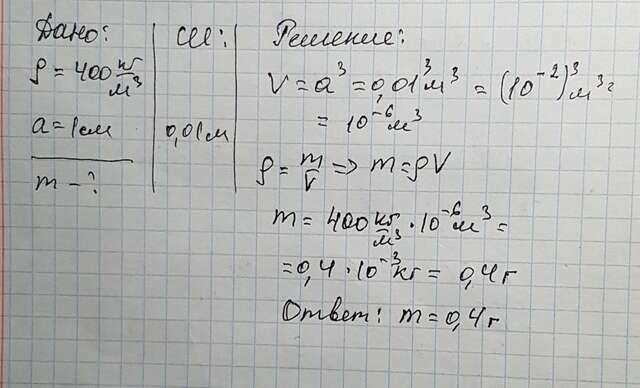 Дано:
ρ = 400 кг/м³
a = 1см
m - ?
СИ:
0,01м
Решение:
V = a³ = 0,01³ м³ = (10⁻²)³ м³ =
= 10⁻⁶ м³
ρ = m/V => m = ρV
m = 400 кг/м³ · 10⁻⁶ м³ =
= 0,4 · 10⁻³ кг = 0,4 г
Ответ: m = 0,4 г